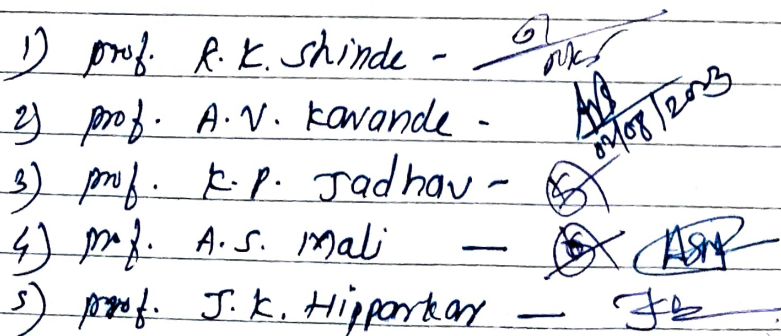 1) prof. R. K. Shinde -
2) prof. A. V. Kavande - 02/08/2023
3) prof. K. P. Jadhav -
4) prof. A. S. Mali — ASM
5) prof. J. K. Hipparkar —